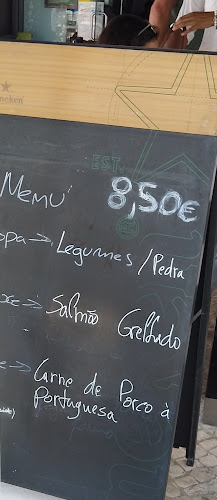 EST.
Menu 8,50€
opa → Legumes / Pedra
xe → Salmão Grelhado
e → Carne de Porco à
Portuguesa